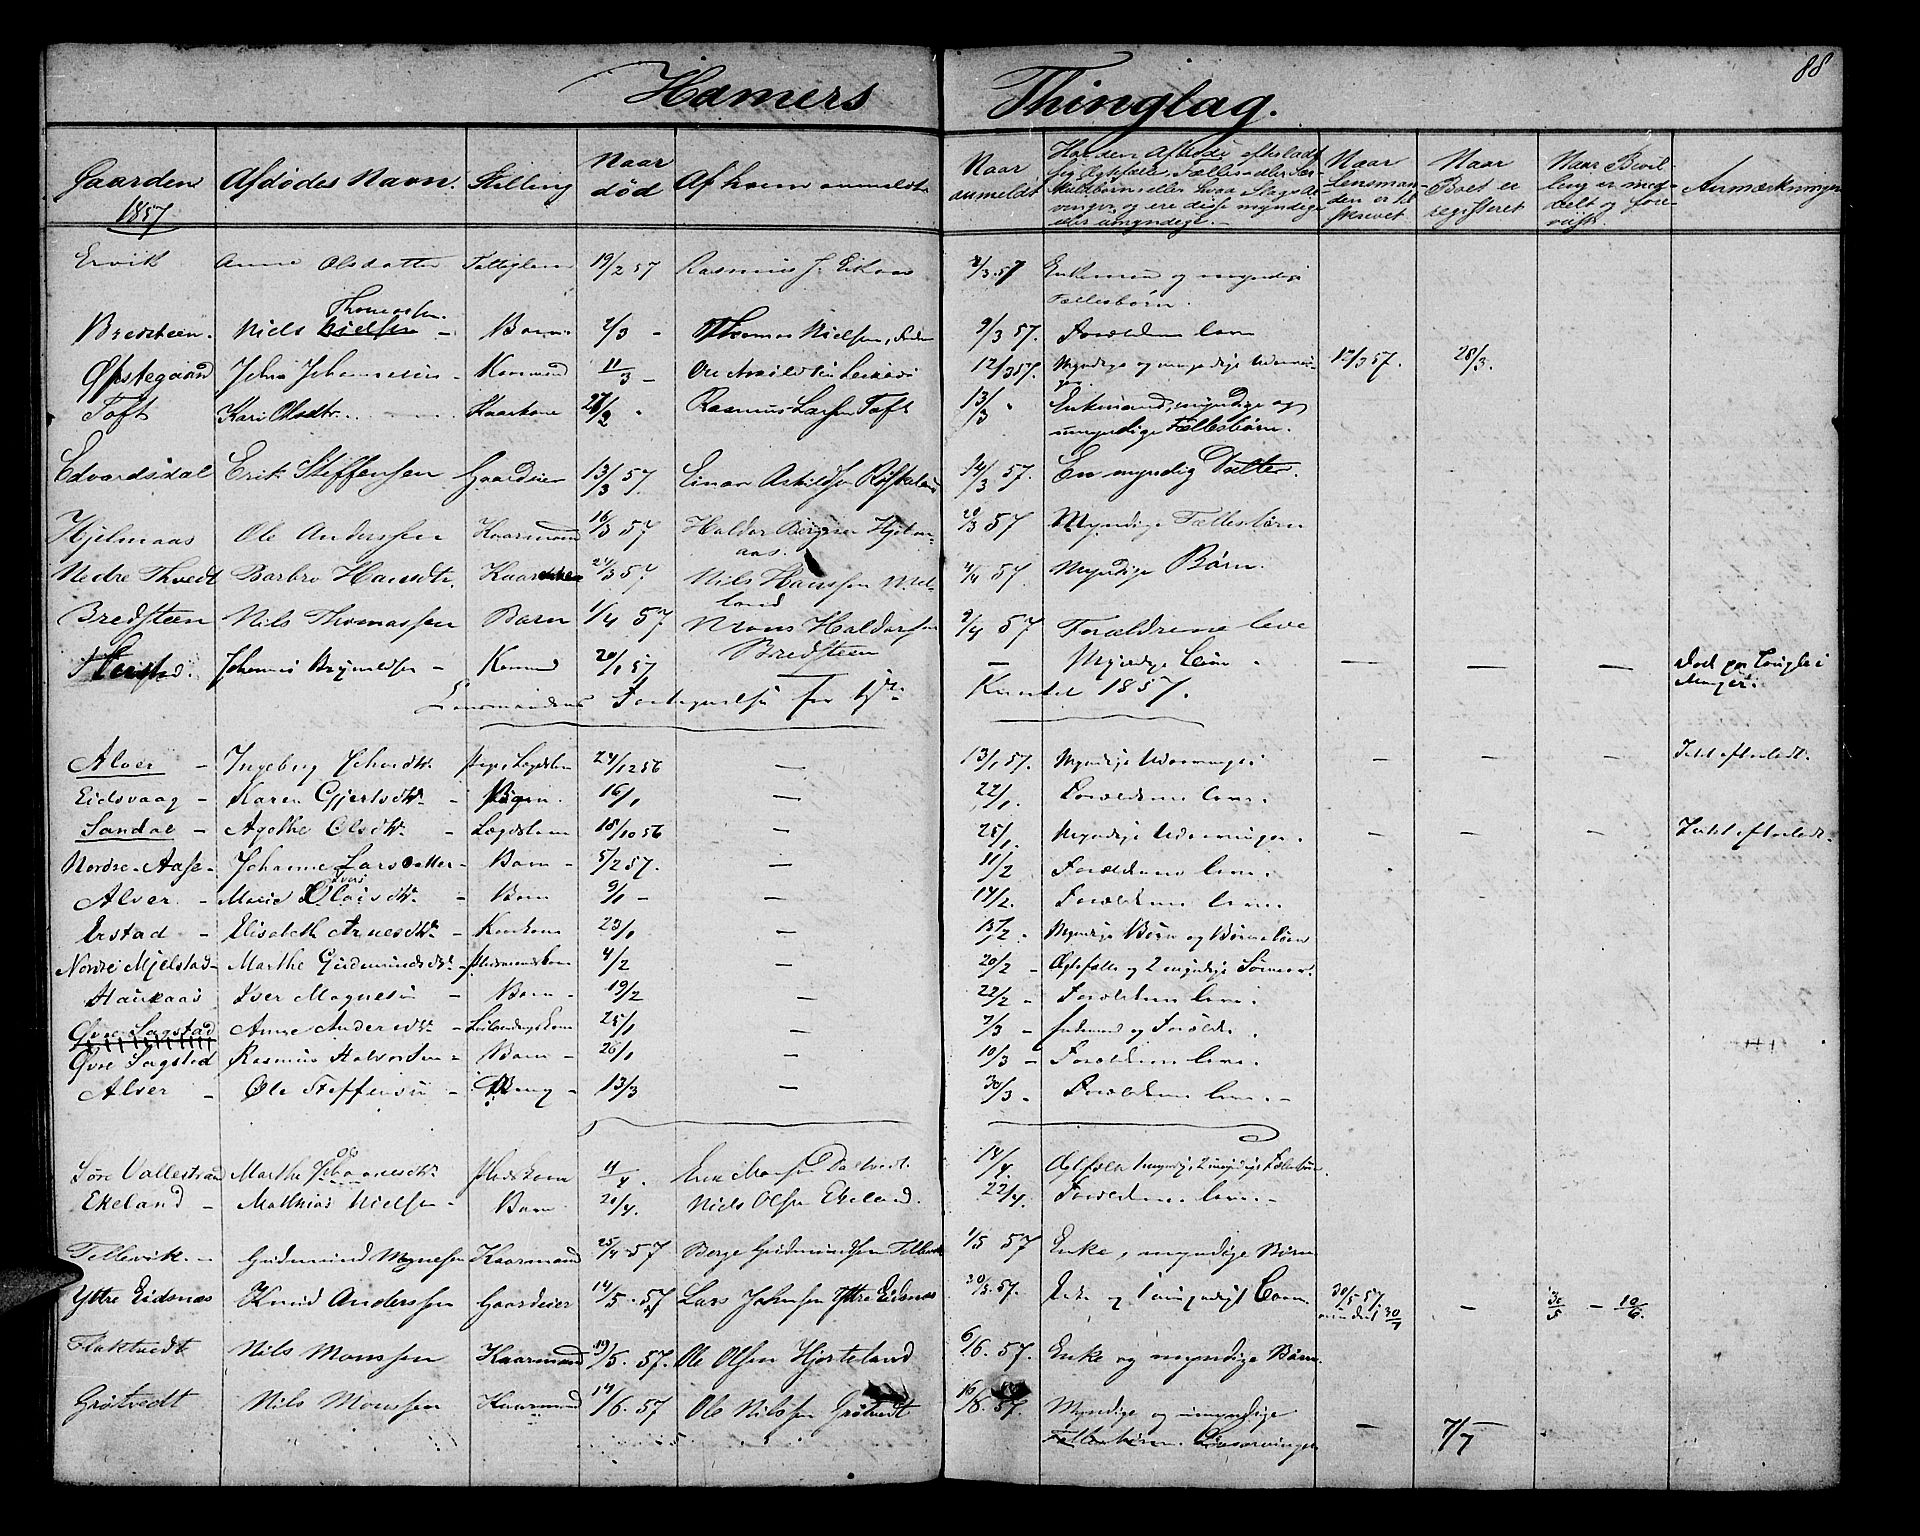 88
Hamers Thinglag.
Gaardens Afdødes Navn. Stilling Naar død Af hvem anmeldt Naar anmeldt Har den Afdøde efterladt sig Ægtefælle, Fælles- eller Sær- kuldsbørn eller Livsarvinger, og ere disse myndige eller umyndige. Naar Lensman- den er til- skrevet Naar Boet er registeret Naar Bevil- ling er med- deelt og fore- viist. Anmærkninger
1857
Ervik Anna Olsdatter 19/2 57 Rasmus J. 2/3 57 Enkemand og myndige
Fællesbørn.
Bredsteen. Niels Nielsen Thomassen - Barn. 2/3 - Thomas Nielsen, 9/3 57. Forældrene leve
Øpstegaard Johannessen - Kaarmand 11/3 - 12/3 57. Myndige og umyndige Udarvin- 12/3 57. 28/3.
ger.
Toft Kari Olsdtr. Kaarkone 28/2 Rasmus Larsen Toft 13/3 Enkemand, myndige og
umyndige Fællesbørn.
Edvardsdal Erik Steffensen Gaardeier 13/3 57. Einar Askildsen 14/3 57. En myndig Datter.
Hjelmaas Ole Anderssen Kaarmand 16/3 57 Haldor Børgesen Hjelm- 20/3 57 Myndige Fællesbørn
aas.
Nedre Thvedt Barbro Hansdtr. Kaarkone 24/3 57. Nils Hanssen Mid- 4/4 57. Myndige Børn.
land
Bredsteen Nils Thomassen Barn 1/4 57 Haldorsen 9/4 57 Forældrene leve
Bredsteen
Johannes Brynildsen - 20/1 57 - Myndige - - - -
Lensmandens Fortegnelse for 1ste Kvartal 1857.
Alver - Ingeborg Lægdslem 24/12 56 - 13/1 57. Myndige Udarvinger - - - Intet efterladt.
Eidsvaag - Karen Gjertsdtr - Barn. 16/1 - 22/1. Forældrene leve.
Sandal - Agathe Olsdtr - Lægdslem 18/10 56 - 25/1. Myndige Udarvinger. - - - Intet efterladt.
Nordre Aase - Johanne Larsdatter - Barn - 5/2 57. - 11/2 Forældrene leve.
Alver - Marie - Barn 9/1 - - 14/2. Forældrene leve.
Erstad - Elisabeth Arnesdtr - 23/1 - 13/2 - Myndige Børn og Børnebørn
Nordre Mjelstad - Marthe Gudmundsdtr - 4/2 - 20/2 - Ægtefælle og 2 myndige Sønner.
Haukaas Iver Magnesen - Barn - 19/2 - 22/2 - Forældrene leve.
Øvre Sagstad Anne Andersdtr - 25/1 - 7/3 - Enkemand og Forældre.
Øvre Sagstad Rasmus Halvorsen - Barn - 26/1 - 10/3 - Forældrene leve.
Alver - Ole Steffensen - - 13/3 - 30/3 - Forældrene leve. -
Søre Vallestrand Marthe Johannesdtr 4/4. 14/4.
Ekeland - Mathias Nielsen - Barn - 20/4. Niels Olsen Ekeland. 22/4. Forældrene leve. -
Tellevik - Gudmund Mognesen Kaarmand 25/4 57 Børge Gudmundsen Tellevik 1/5 57 Enke, myndige Børn
Yttre Eidsnæs Knud Anderssen Gaardeier 14/5. 57 Lars Johnsen Yttre Eidsnæs 30/5 57. Enke og 1 umyndigt Barn. 30/5 57. - 30/5 - 10/6.
Flaktvedt Nils Monssen Kaarmand 19/5. 57. Ole Olsen Hjorteland 6/6. 57. Enke og myndige Børn.
Grøtvedt Nils Monssen Kaarmand 14/6. 57 Ole Nilssen Grøtvedt 16/6. 57. Myndige og umyndige - 7/7
Fællesbørn. Livsarvinger